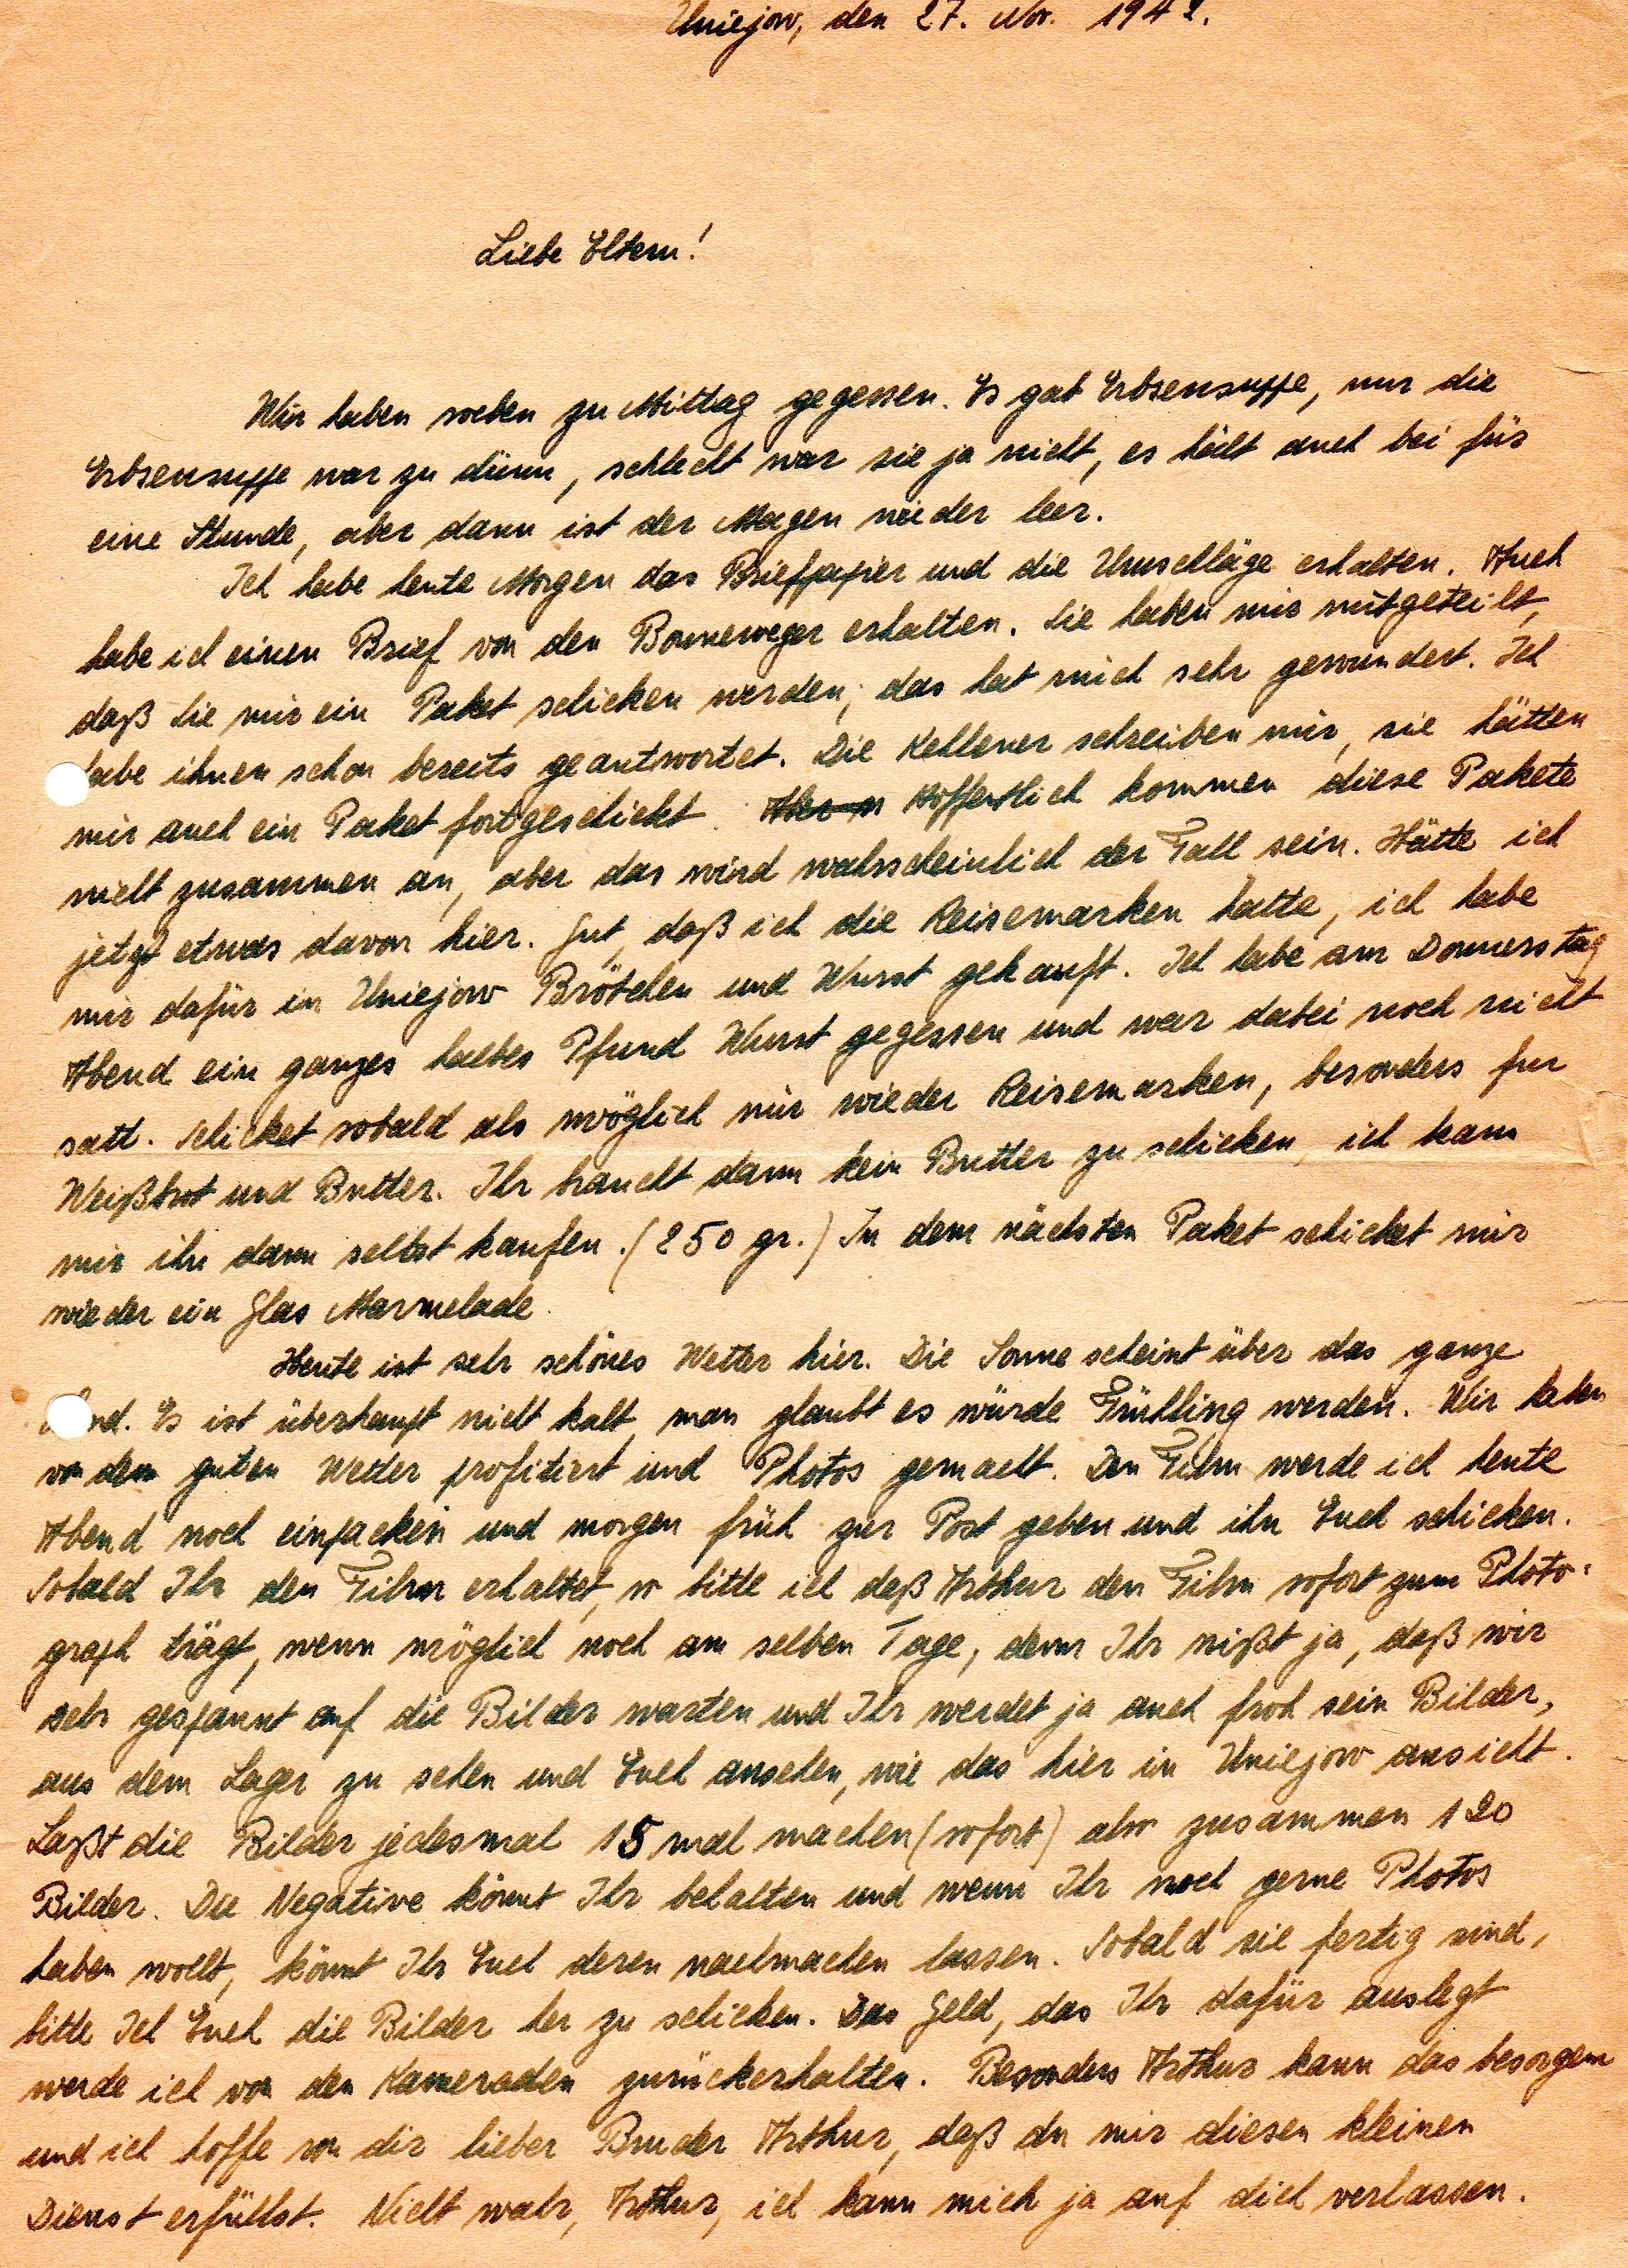 Uniejow, den 27. Nov. 1942.
Liebe Eltern!
Wir haben soeben zu Mittag gegessen. Es gab Erbsensuppe, nur die
Erbsensuppe war zu dünn, schlecht war sie ja nicht, es hält auch bei für
eine Stunde, aber dann ist der Magen wieder leer.
Ich habe heute Morgen das Briefpapier und die Umschläge erhalten. Auch
habe ich einen Brief von den Bonneweger erhalten. Sie haben mir mitgeteilt,
daß Sie mir ein Paket schicken werden, das hat mich sehr gewundert. Ich
habe ihnen schon bereits geantwortet. Die Kellener schreiben mir, sie hätten
mir auch ein Paket fortgeschickt. Hoffentlich kommen diese Pakete
nicht zusammen an, aber das wird wahrscheinlich der Fall sein. Hätte ich
jetzt etwas davon hier. Gut, daß ich die Reisemarken hatte, ich habe
mir dafür in Uniejow Brötchen und Wurst gekauft. Ich habe am Donnerstag
Abend ein ganzes halbes Pfund Wurst gegessen und war dabei noch nicht
satt. Schicket sobald als möglich mir wieder Reisemarken, besonders fur
Weißbrot und Butter. Ihr braucht dann kein Butter zu schicken, ich kann
mir ihn dann selbst kaufen. (250 gr.) In dem nächsten Paket schicket mir
wieder ein Glas Marmelade.
Heute ist sehr schönes Wetter hier. Die Sonne scheint über das ganze
Land. Es ist überhaupt nicht kalt, man glaubt es würde Frühling werden. Wir haben
von dem guten Wetter profitiert und Photos gemacht. Den Film werde ich heute
Abend noch einpacken und morgen früh zur Post geben und ihn Euch schicken.
Sobald Ihr den Film erhaltet, so bitte ich daß Arthur den Film sofort zum Photo-
graph trägt, wenn möglich noch am selben Tage, denn Ihr wißt ja, daß wir
sehr gespannt auf die Bilder warten und Ihr werdet ja auch froh sein Bilder,
aus dem Lager zu sehen und Euch ansehen, wie das hier in Uniejow aussieht.
Laßt die Bilder jedesmal 15 mal machen (sofort) also zusammen 120
Bilder. Die Negative könnt Ihr behalten und wenn Ihr noch gerne Photos
haben wollt, könnt Ihr Euch deren nachmachen lassen. Sobald sie fertig sind,
bitte Ich Euch die Bilder her zu schicken. Das Geld, das Ihr dafür auslegt
werde ich von den Kameraden zurückerhalten. Besonders Arthur kann das besorgen
und ich hoffe von dir lieber Bruder Arthur, daß du mir diesen kleinen
Dienst erfüllst. Nicht wahr, Arthur, ich kann mich ja auf dich verlassen.